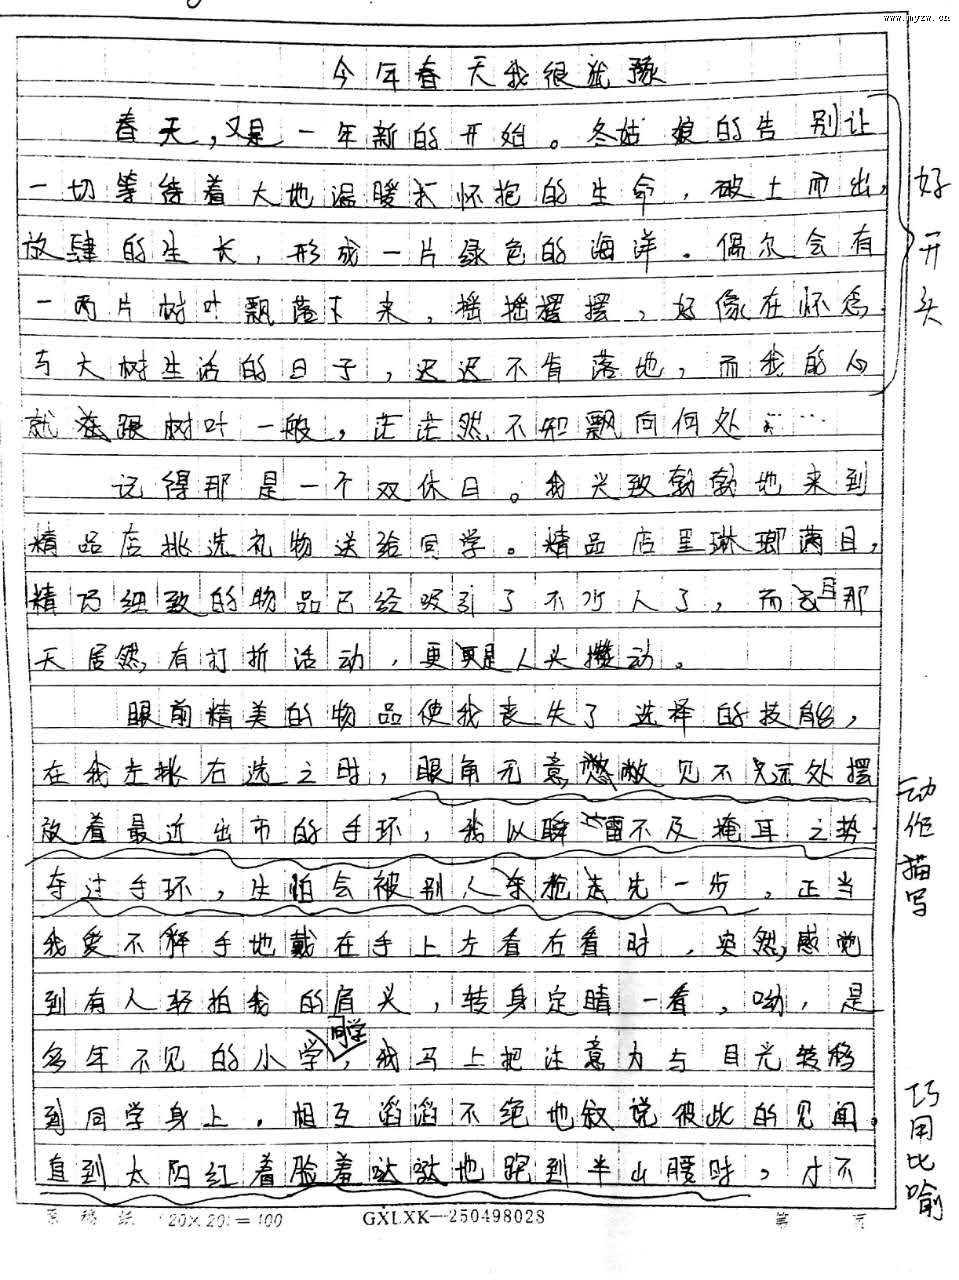 www.myzw.cn
今年春天我很犹豫
春天，又是一年新的开始。冬姑娘的告别让
一切等待着大地温暖怀抱的生命，破土而出，
放肆的生长，形成一片绿色的海洋。偶尔会有
一两片树叶飘落下来，摇摇摆摆，好像在怀念
与大树生活的日子，迟迟不肯落地，而我的心
就跟树叶一般，茫茫然不知飘向何处……
记得那是一个双休日。我兴致勃勃地来到
精品店挑选礼物送给同学。精品店里琳瑯满目，
精巧细致的物品已经吸引了不少人了，而且那
天居然有打折活动，更是人头攒动。
眼前精美的物品使我丧失了选择的技能，
在我左挑右选之时，眼角无意瞥见不远处摆
放着最近出市的手环，我以瞬雷不及掩耳之势
夺过手环，生怕会被别人抢走先一步，正当
我爱不释手地戴在手上左看右看时，突然，感觉
到有人轻拍我的肩头，转身定睛一看，呦，是
多年不见的小学同学，我马上把注意力与目光转移
到同学身上，相互滔滔不绝地叙说彼此的见闻。
直到太阳红着脸羞哒哒地跑到半山腰时，才不
好开头
动作描写
巧用比喻
原稿纸 (20×20)=400 GXLXK—250498028 第 页